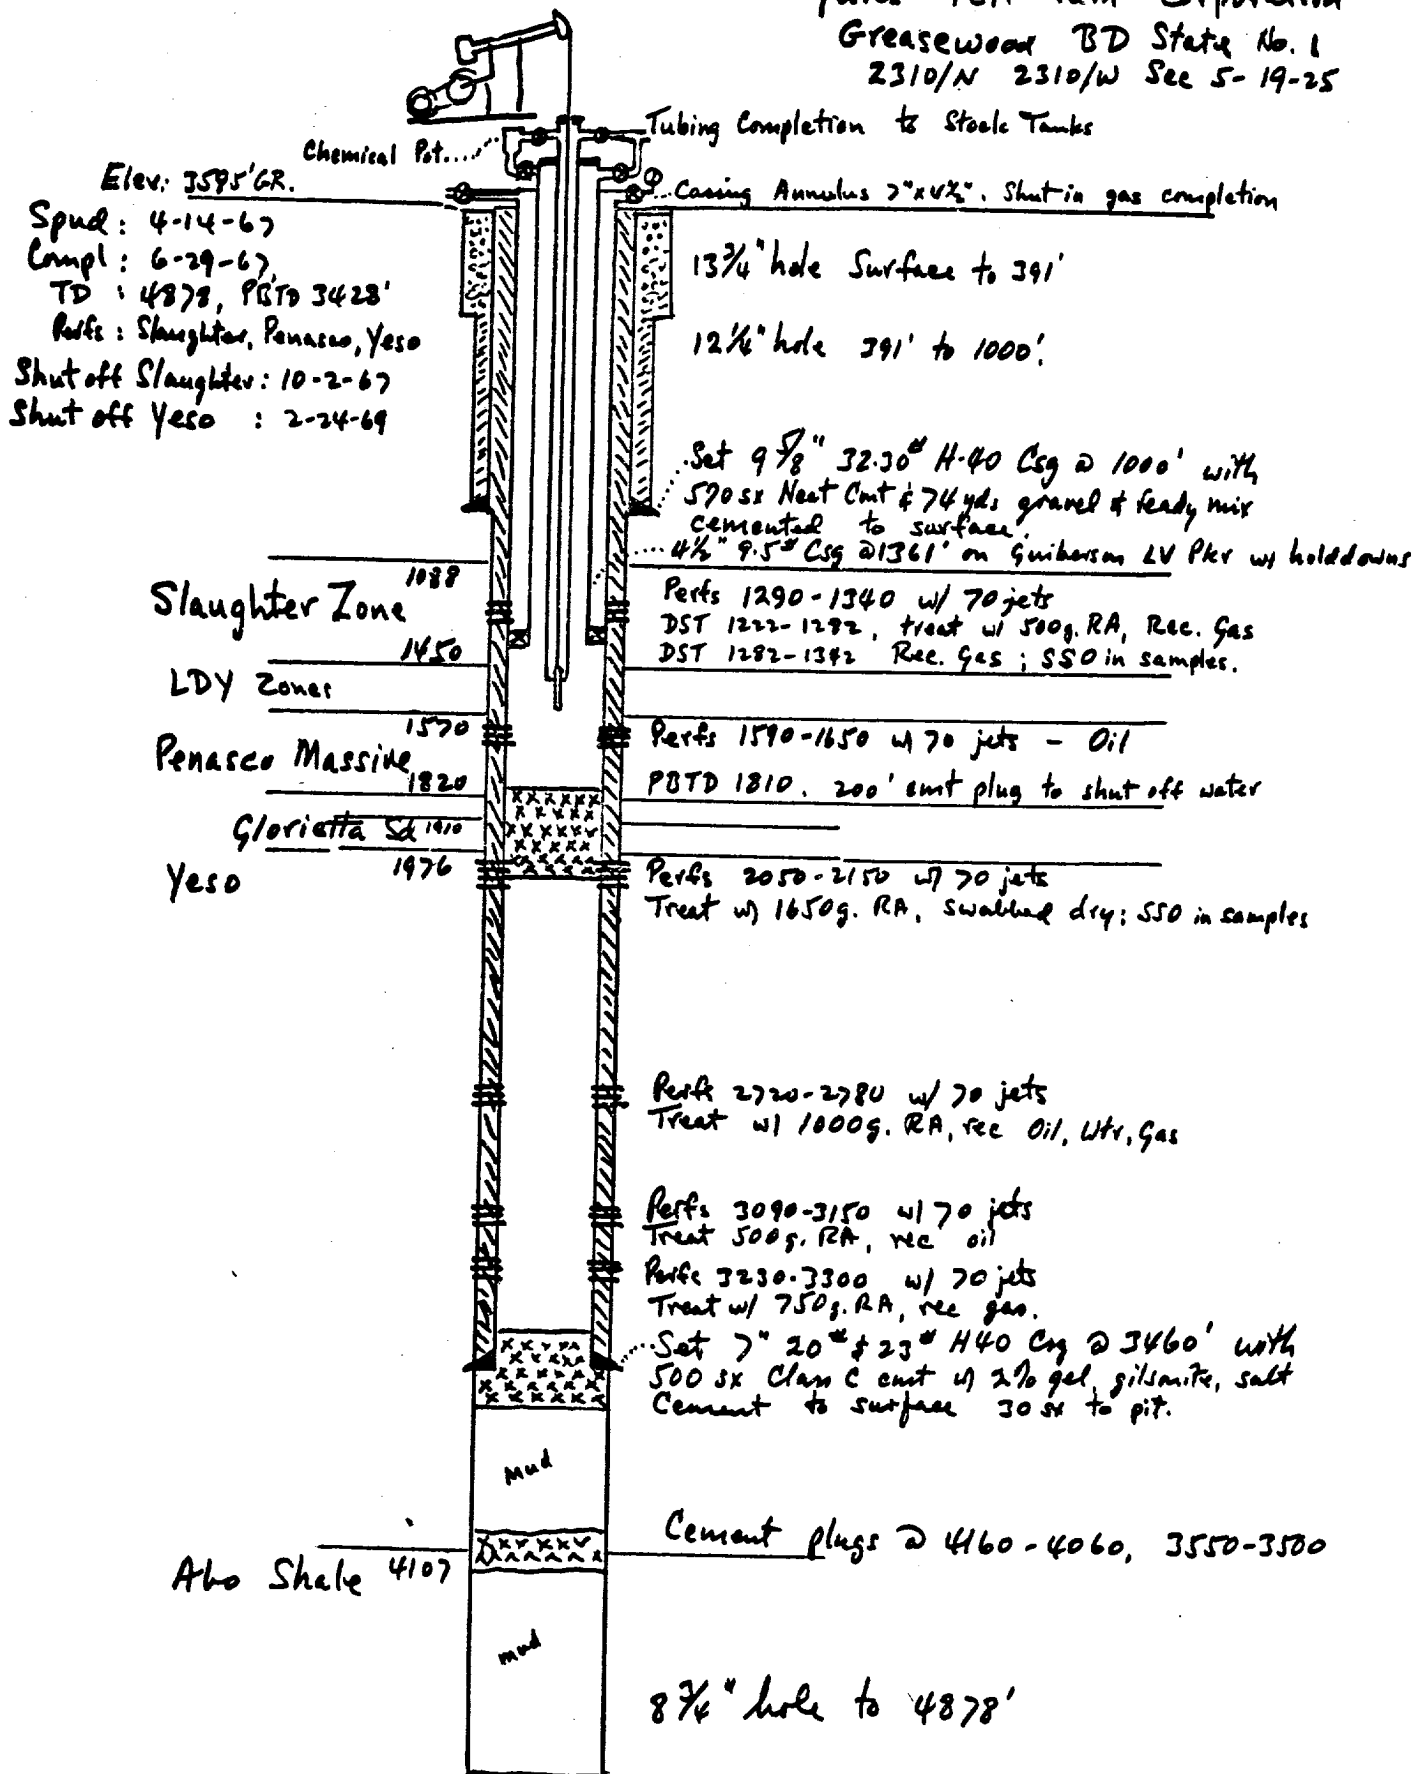 Greasewood BD State No. 1
2310/N 2310/W Sec 5-19-25
Tubing Completion to Stock Tanks
Chemical Pot....
Elev: 3595' GR.
Casing Annulus 7" x 4½". Shut in gas completion
Spud: 4-14-67
Compl: 6-29-67
TD : 4878, PBTD 3428'
Perfs: Slaughter, Penasco, Yeso
Shut off Slaughter: 10-2-67
Shut off Yeso : 2-24-69
13¾" hole Surface to 391'
12¼" hole 391' to 1000'.
Set 9 5/8" 32.30# H-40 Csg @ 1000' with
570 sx Neat Cmt & 74 yds gravel & ready mix
cemented to surface.
4½" 9.5# Csg @ 1361' on Guiberson LV Pkr w/ holddowns
1088
Slaughter Zone
Perfs 1290-1340 w/ 70 jets
DST 1222-1282, treat w/ 500g. RA, Rec. Gas
DST 1282-1342 Rec. Gas ; SSO in samples.
1450
LDY Zones
1570
Perfs 1590-1650 w/ 70 jets - Oil
Penasco Massive
1820
PBTD 1810. 200' cmt plug to shut off water
Glorietta Sd 1910
1976
Yeso
Perfs 2050-2150 w/ 70 jets
Treat w/ 1650g. RA, swabbed dry; SSO in samples
Perfs 2720-2780 w/ 70 jets
Treat w/ 1000g. RA, rec Oil, Wtr, Gas
Perfs 3090-3150 w/ 70 jets
Treat 500g. RA, rec oil
Perfs 3230-3300 w/ 70 jets
Treat w/ 750g. RA, rec gas.
Set 7" 20# & 23# H40 Csg @ 3460' with
500 sx Class C cmt w/ 2% gel, gilsonite, salt
Cement to surface 30 sx to pit.
Mud
Cement plugs @ 4160-4060, 3550-3500
Abo Shale 4107
mud
8¾" hole to 4878'